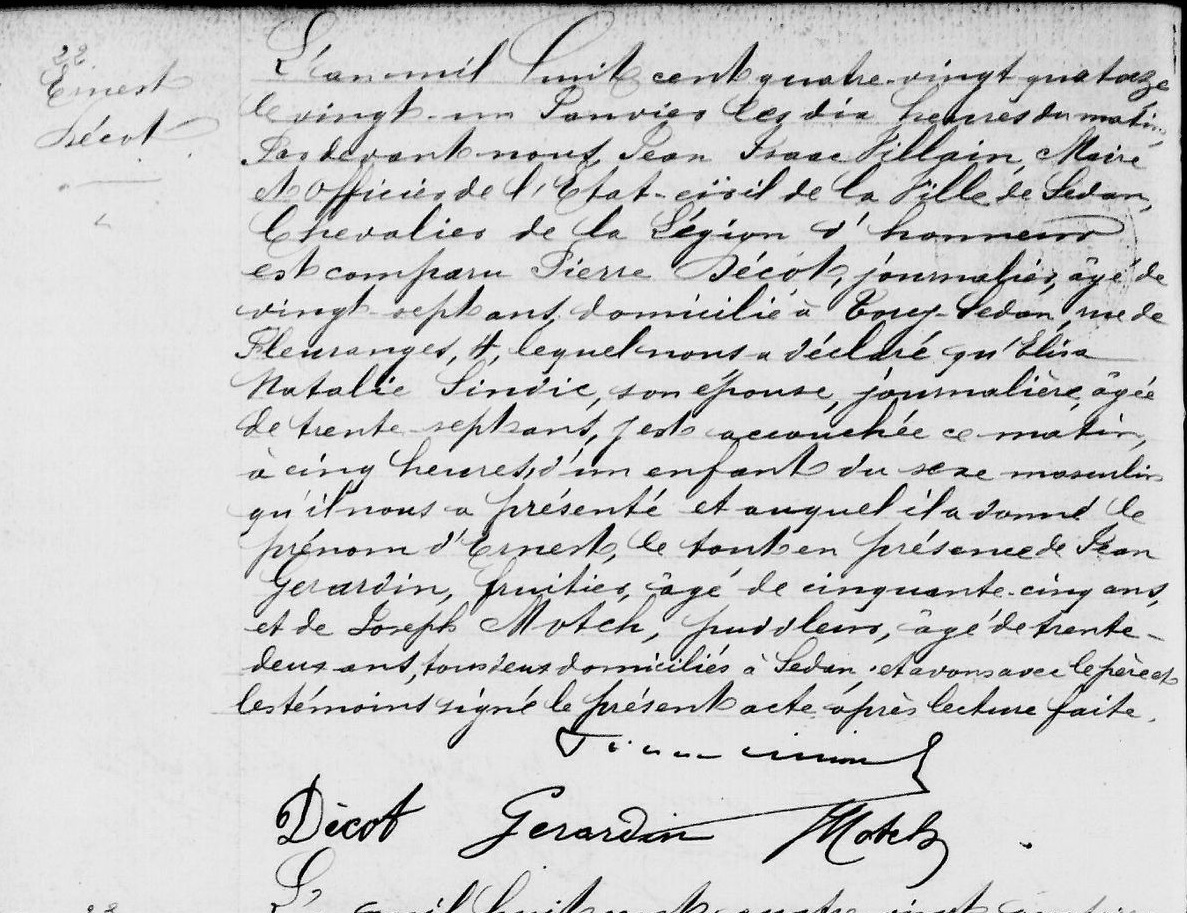 22.
Ernest
Décot
L'an mil huit cent quatre-vingt quatorze
le vingt-un Janvier les dix heures du matin,
Par devant nous, Jean Isaac Villain, Maire
et officier de l'Etat-civil de la Ville de Sedan,
Chevalier de la Légion d'honneur
est comparu Pierre Décot, journalier, âgé de
vingt-sept ans, domicilié à Torcy-Sedan, rue de
Fleuranges, 4, lequel nous a déclaré qu'Elisa
Natalie Sindic, son épouse, journalière, âgée
de trente-sept ans, est accouchée ce matin,
à cinq heures, d'un enfant du sexe masculin
qu'il nous a présenté et auquel il a donné le
prénom d'Ernest, le tout en présence de Jean
Gerardin, fruitier, âgé de cinquante-cinq ans,
et de Joseph Motch, puddleur, âgé de trente-
deux ans, tous deux domiciliés à Sedan, et avons avec le père et
les témoins signé le présent acte après lecture faite.
Décot Gerardin Motch
L'an mil huit cent quatre vingt